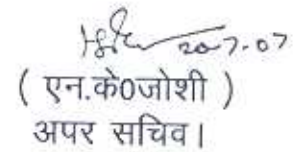 20-7-07
( एन.के0जोशी )
अपर सचिव।